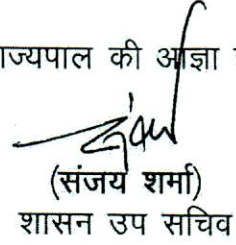 की आज्ञा
(संजय शर्मा)
शासन उप सचिव